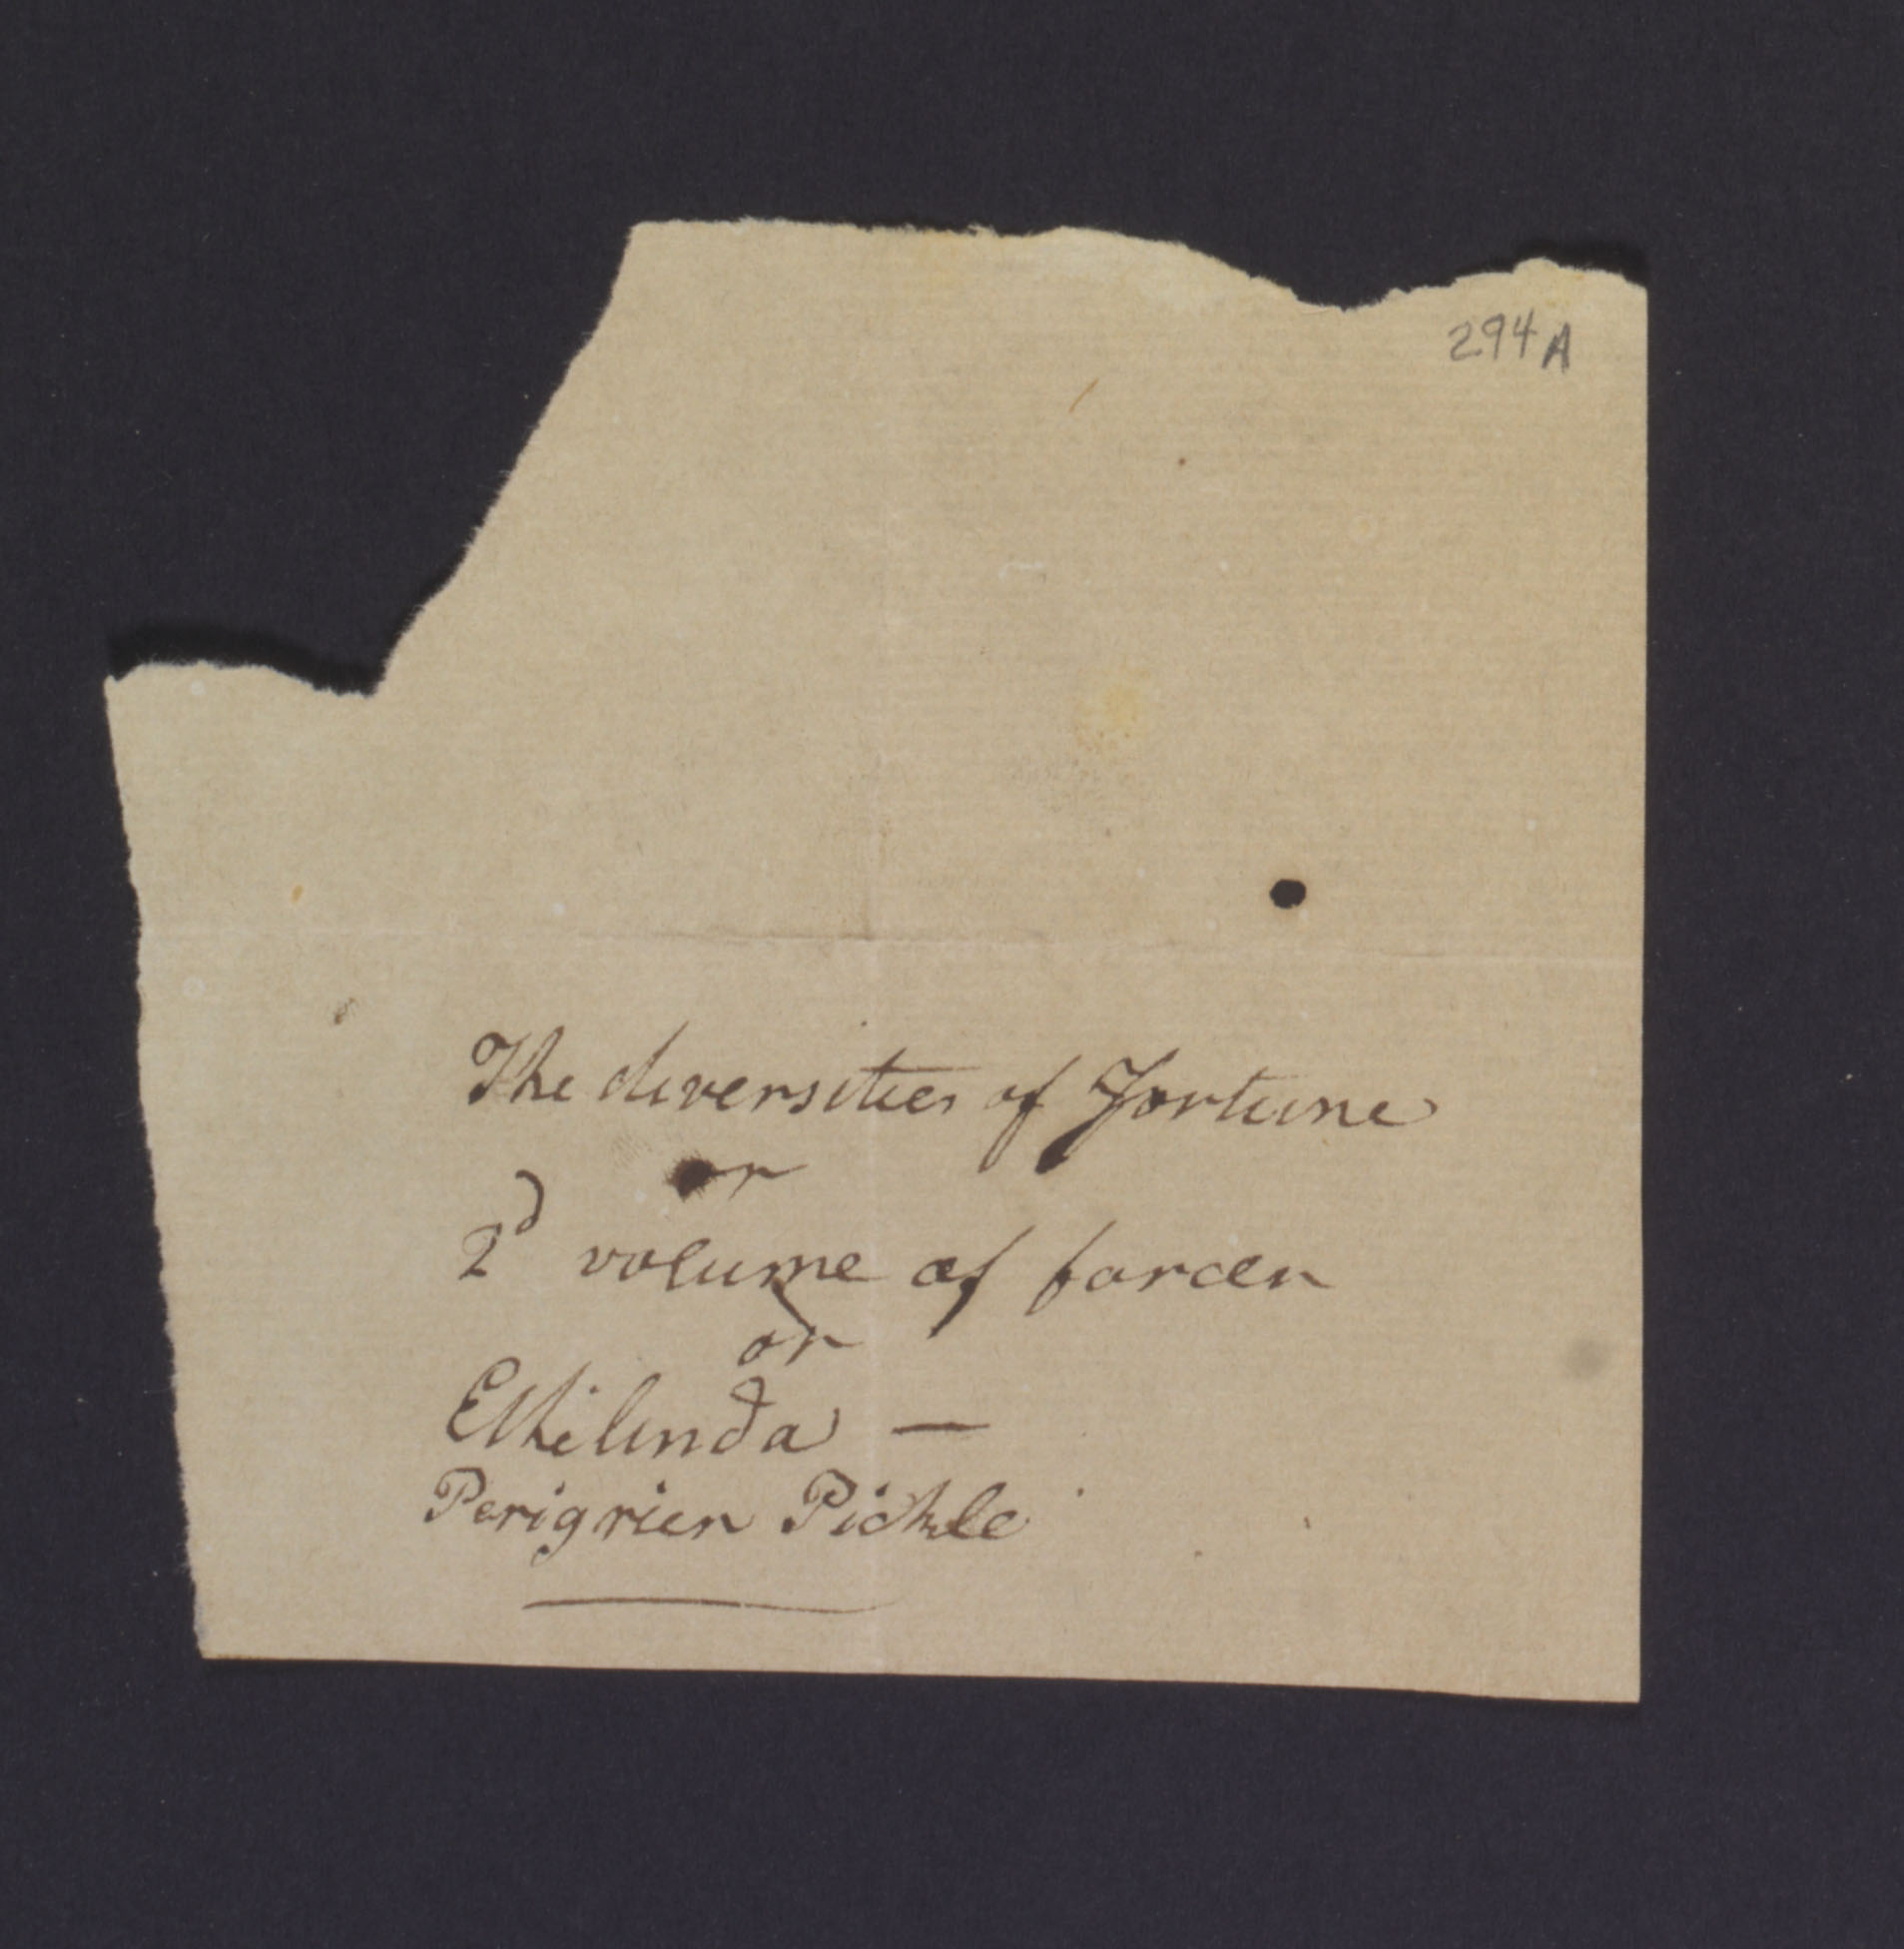 294A
The diversities of Fortune
or
2d volume of farces
or
Ethelinda —
Perigrien Pickle